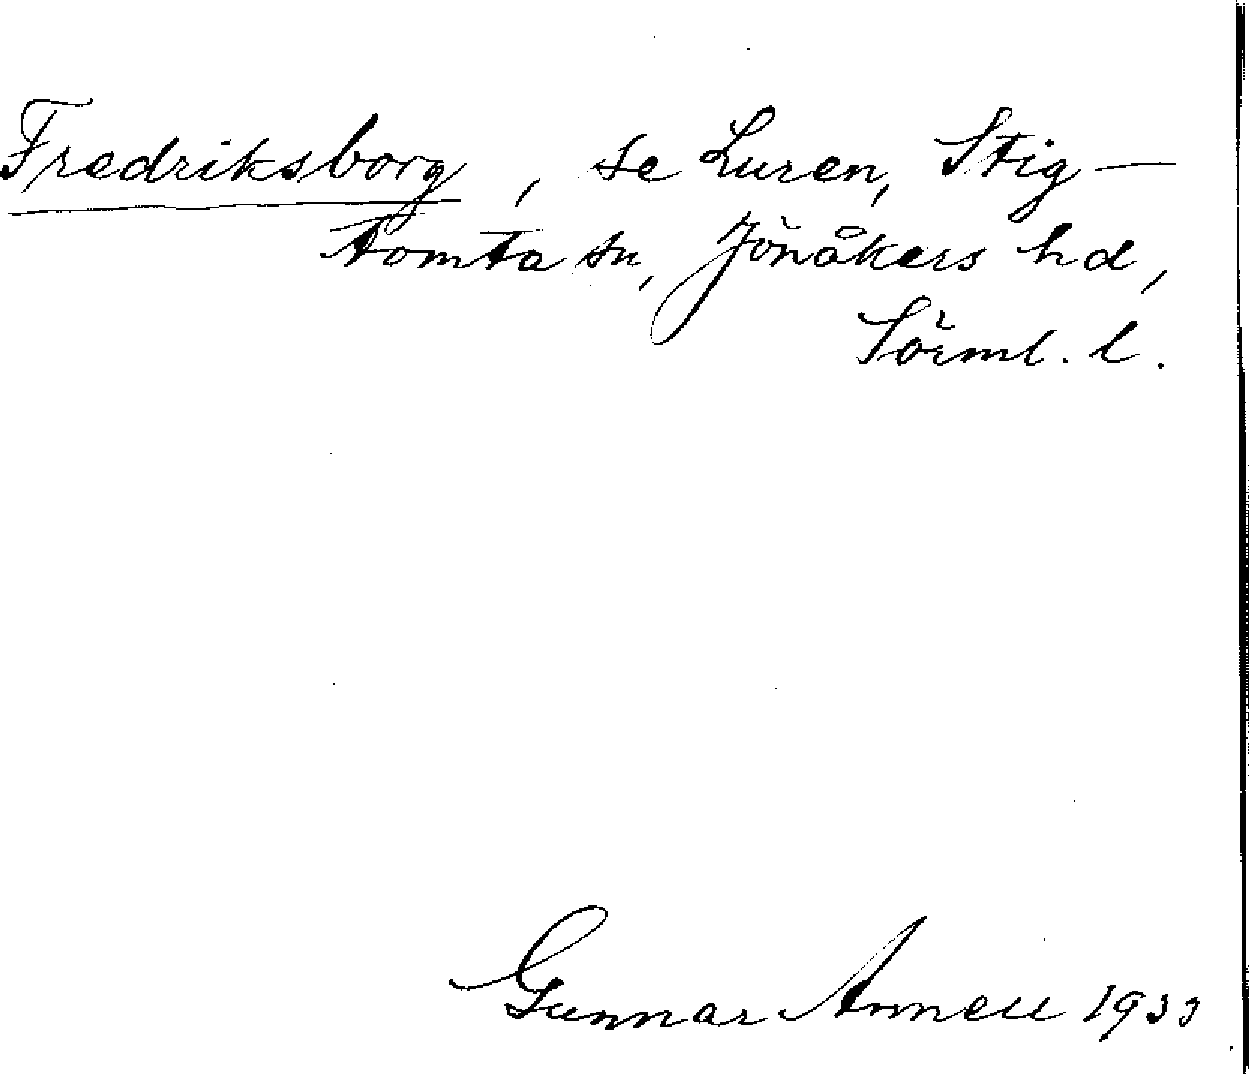 Fredriksborg, se Luren, Stig-
tomta sn, Jönåkers hd,
Sörml. l.
Gunnar Annell 1933